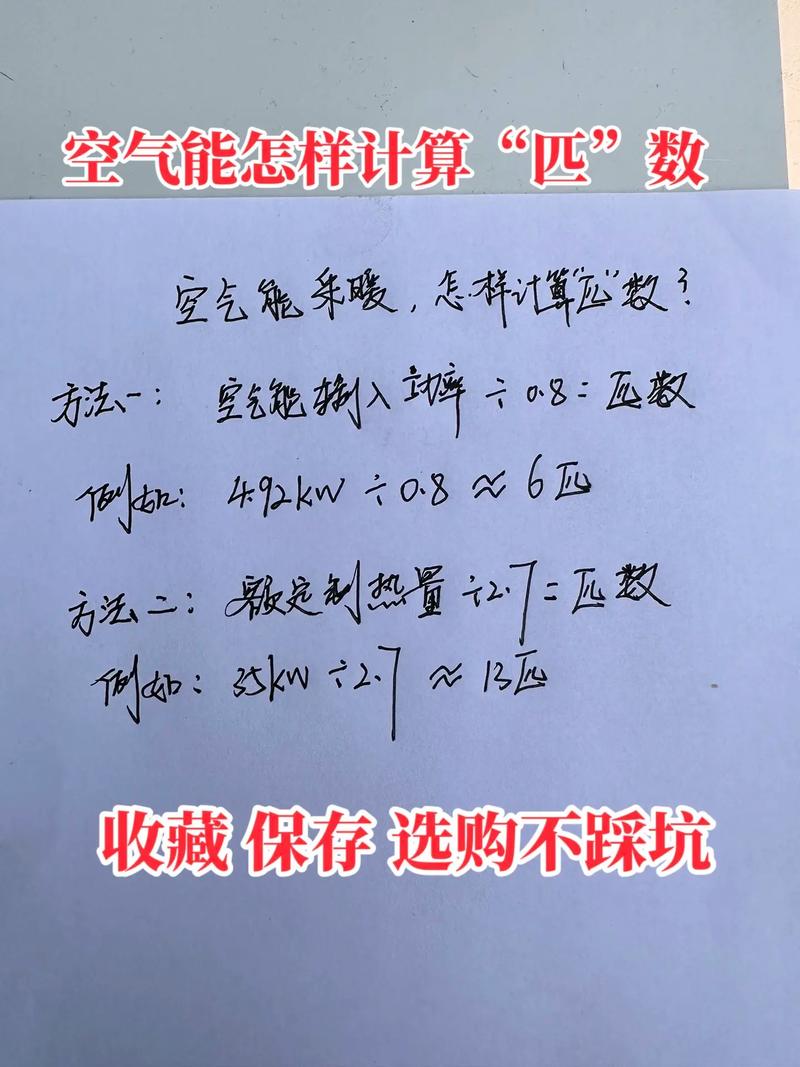 空气能怎样计算“匹”数
空气能采暖,怎样计算“匹”数?
方法一: 空气能输入功率÷0.8=匹数
例如: 4.92kW÷0.8≈6匹
方法二: 额定制热量÷2.7=匹数
例如: 35kW÷2.7≈13匹
收藏 保存 选购不踩坑